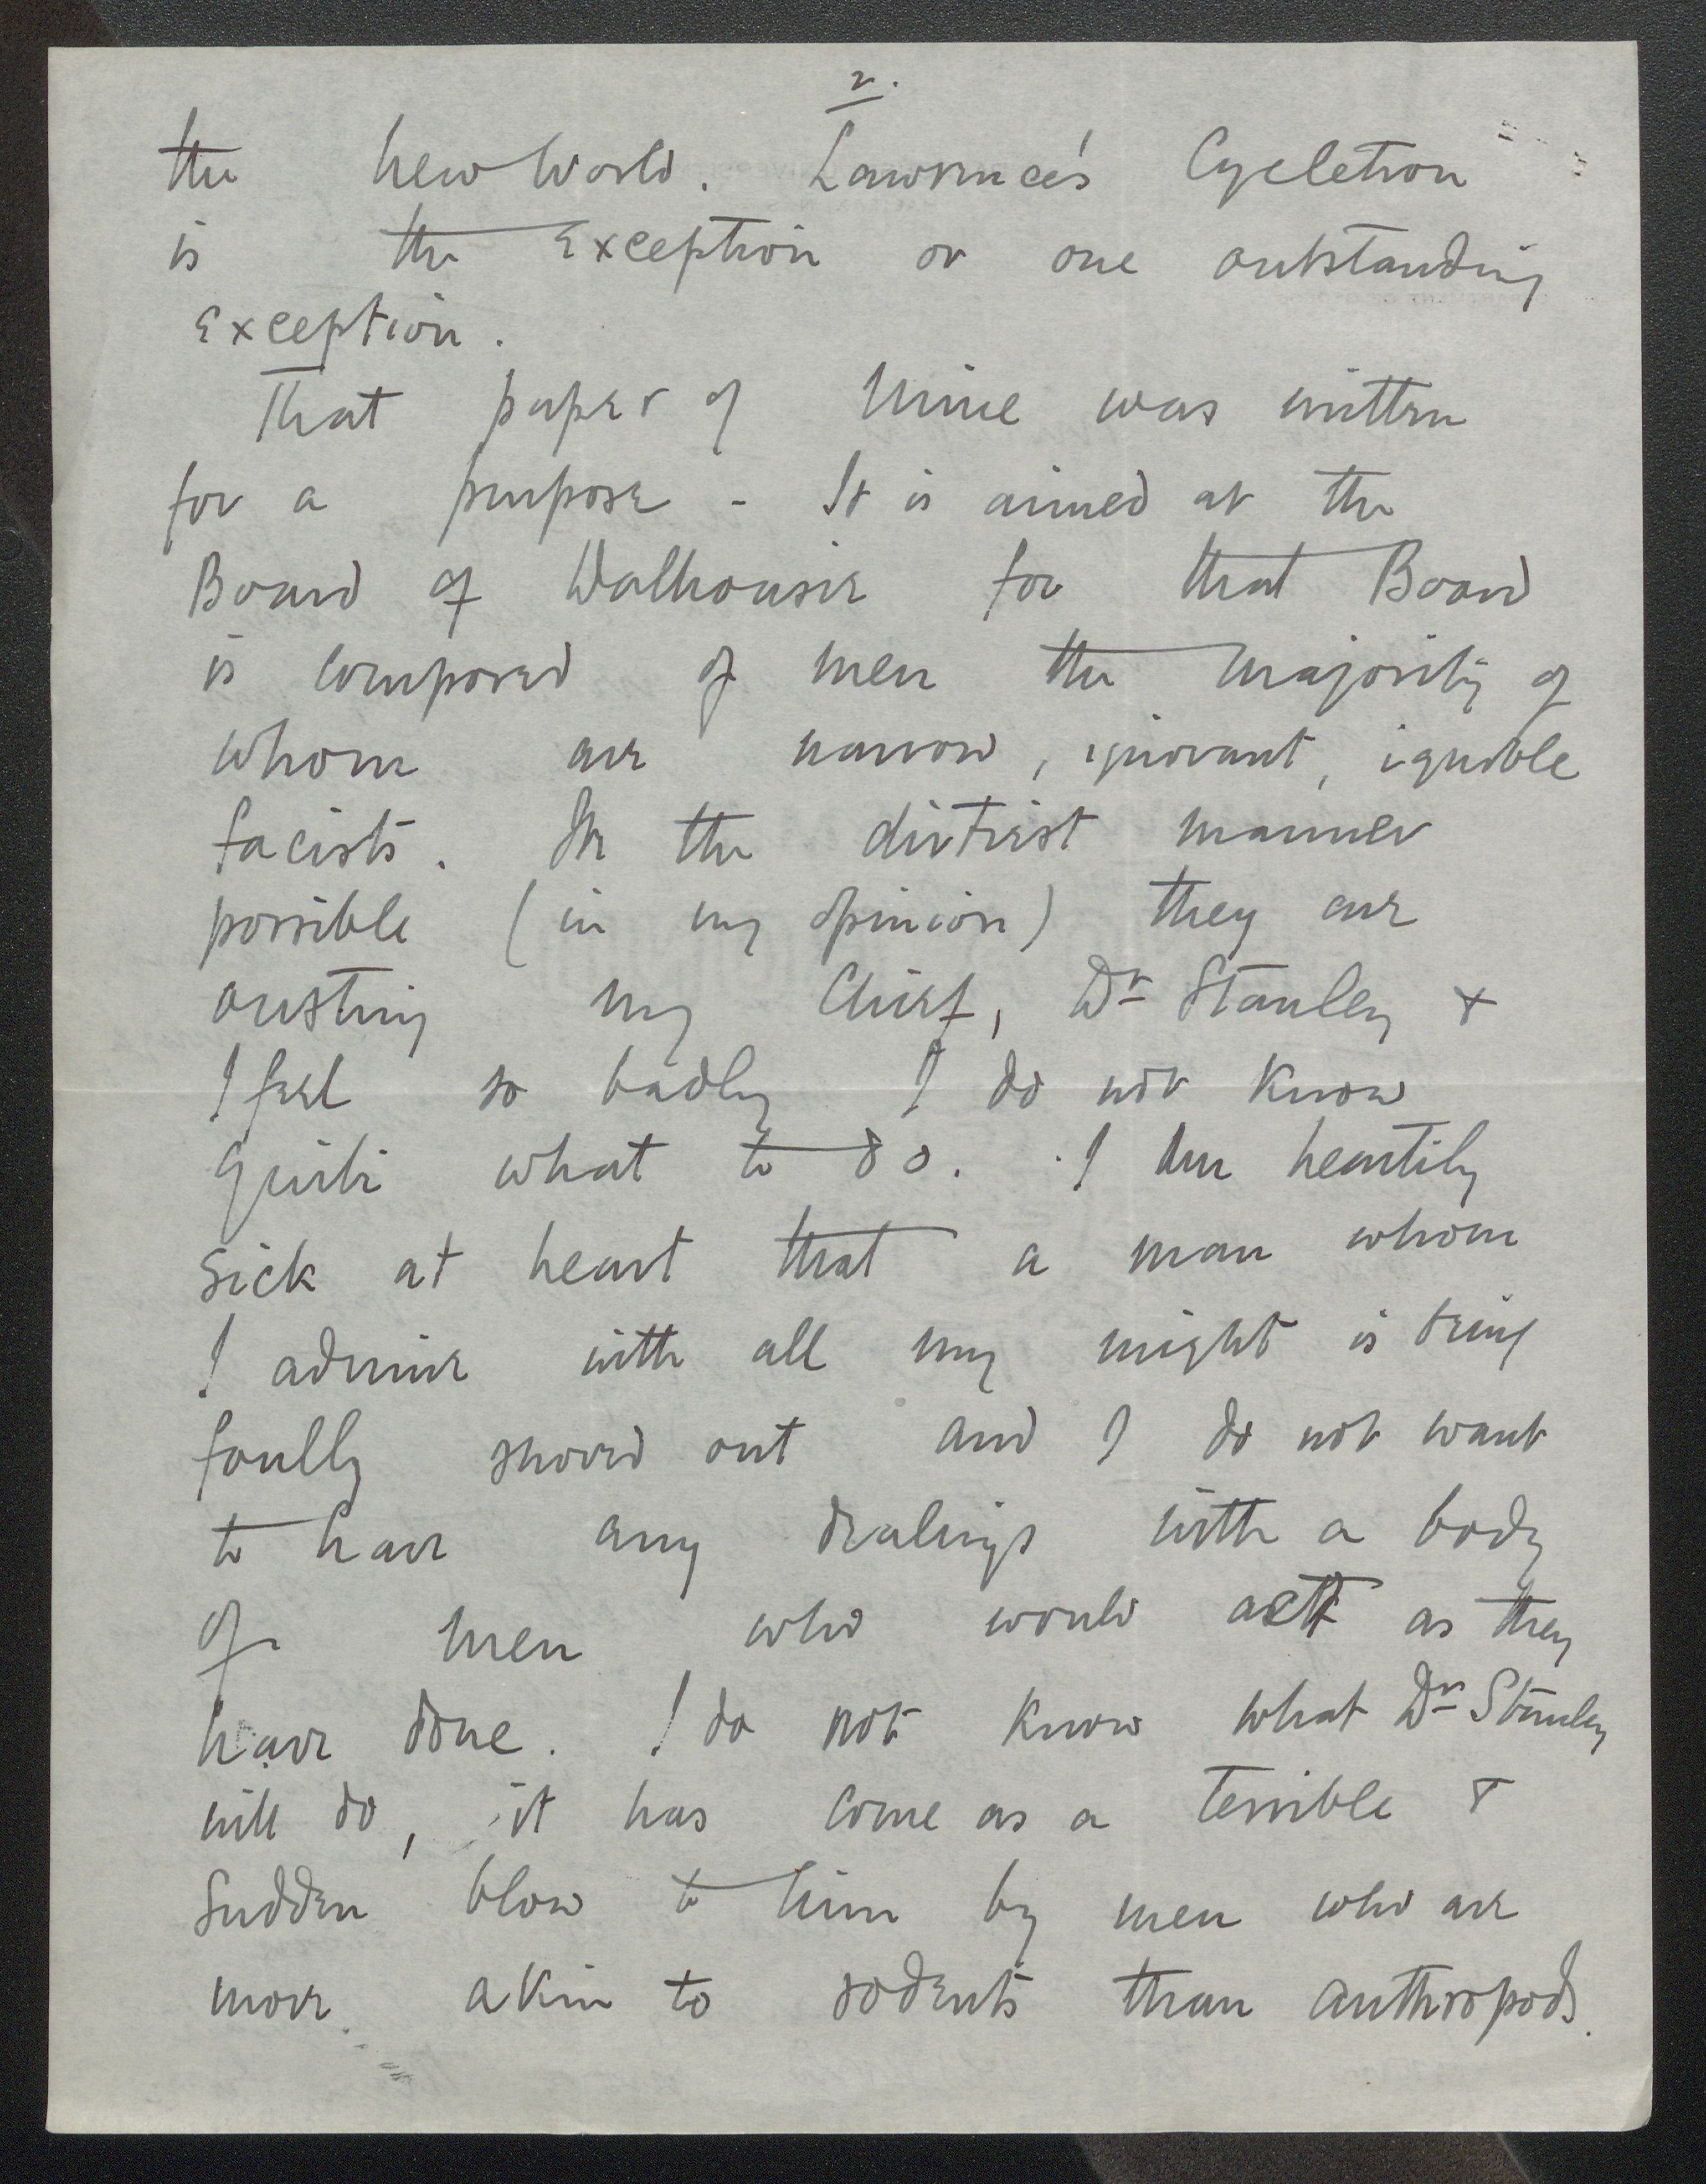 2.
the new World. Lawrence's Cycletron
is the exception or one outstanding
exception.
That paper of mine was written
for a purpose - It is aimed at the
Board of Dalhousie for that Board
is composed of men the majority of
whom are narrow, ignorant, ignoble
facists. In the dirtiest manner
possible (in my opinion) they are
ousting my Chief, Dr Stanley &
I feel so badly I do not know
quite what to do. I am heartily
sick at heart that a man whom
I admire with all my might is being
foully shoved out and I do not want
to have any dealings with a body
of men who would act as they
have done. I do not know what Dr Stanley
will do, it has come as a terrible &
sudden blow to him by men who are
more akin to rodents than anthropods.